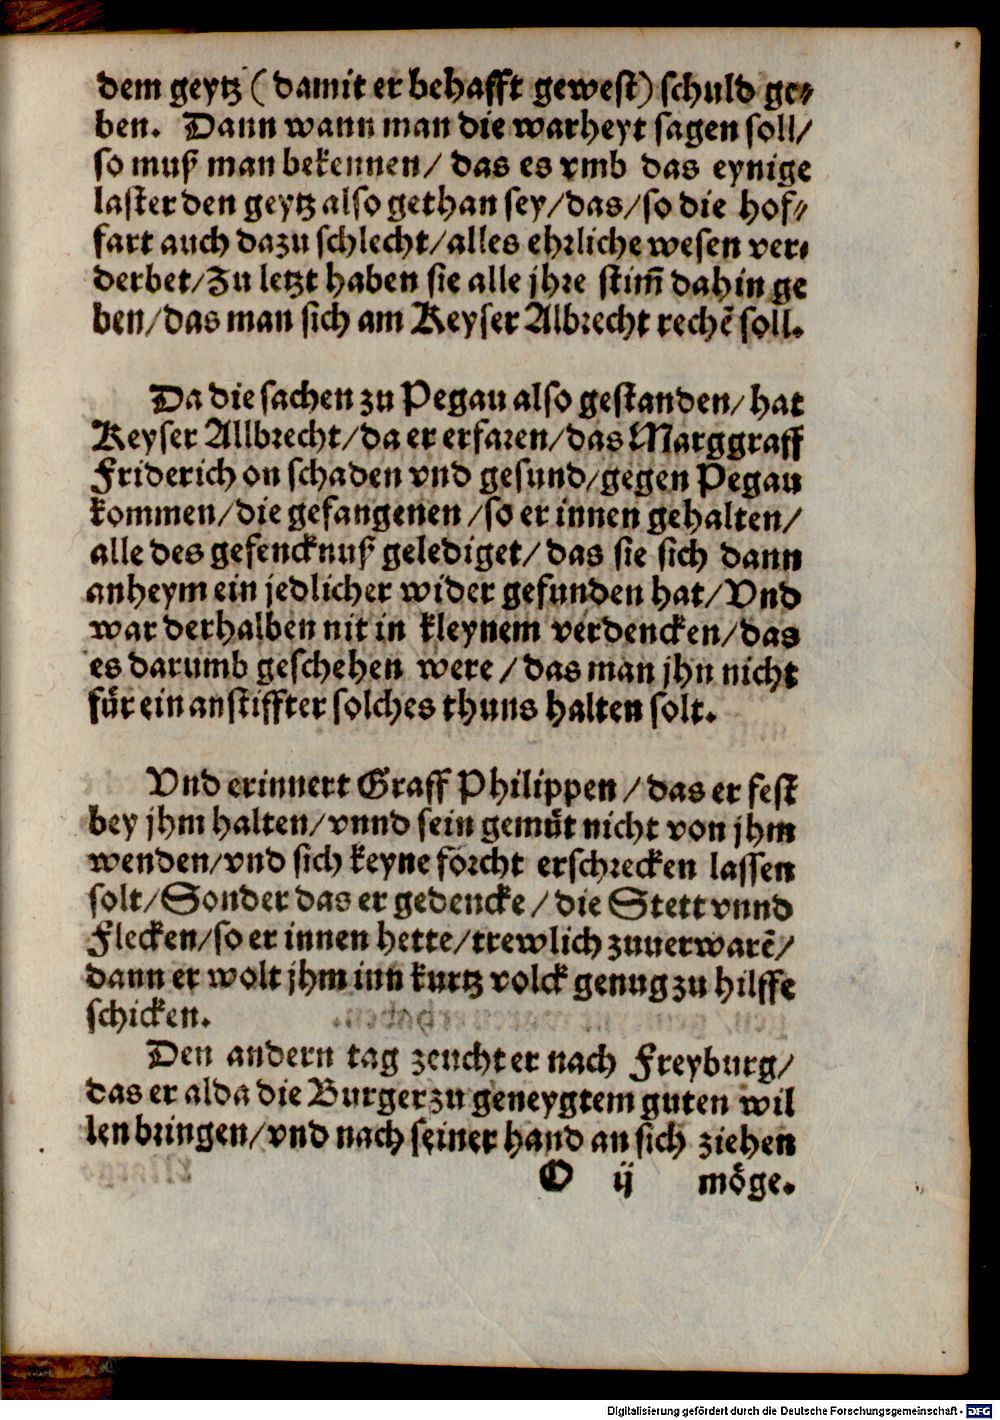 dem geytz (damit er behafft gewest) schuld ge⸗
ben. Dann wann man die warheyt sagen soll/
so muß man bekennen/ das es vmb das eynige
laster den geytz also gethan sey/das/so die hof⸗
fart auch dazu schlecht/alles ehrliche wesen ver⸗
derbet/Zu letzt haben sie alle jhre stim̃ dahin ge
ben/das man sich am Keyser Albrecht rechẽ soll.
Da die sachen zu Pegau also gestanden/ hat
Keyser Allbrecht/da er erfaren/das Marggraff
Friderich on schaden vnd gesund/gegen Pegau
kommen/die gefangenen /so er innen gehalten/
alle des gefencknuß gelediget/ das sie sich dann
anheym ein jedlicher wider gefunden hat/ Vnd
war derhalben nit in kleynem verdencken/das
es darumb geschehen were / das man jhn nicht
für ein anstiffter solches thuns halten solt.
Vnd erinnert Graff Philippen / das er fest
bey jhm halten/vnnd sein gemüt nicht von jhm
wenden/vnd sich keyne forcht erschrecken lassen
solt/Sonder das er gedencke / die Stett vnnd
Flecken/so er innen hette/trewlich zuuerwarẽ/
dann er wolt jhm inn kurtz volck genug zu hilffe
schicken.
Den andern tag zeucht er nach Freyburg/
das er alda die Burger zu geneygtem guten wil
len bringen/vnd nach seiner hand an sich ziehen
O ij möge.
Digitalisierung gefördert durch die Deutsche Forschungsgemeinschaft - DFG